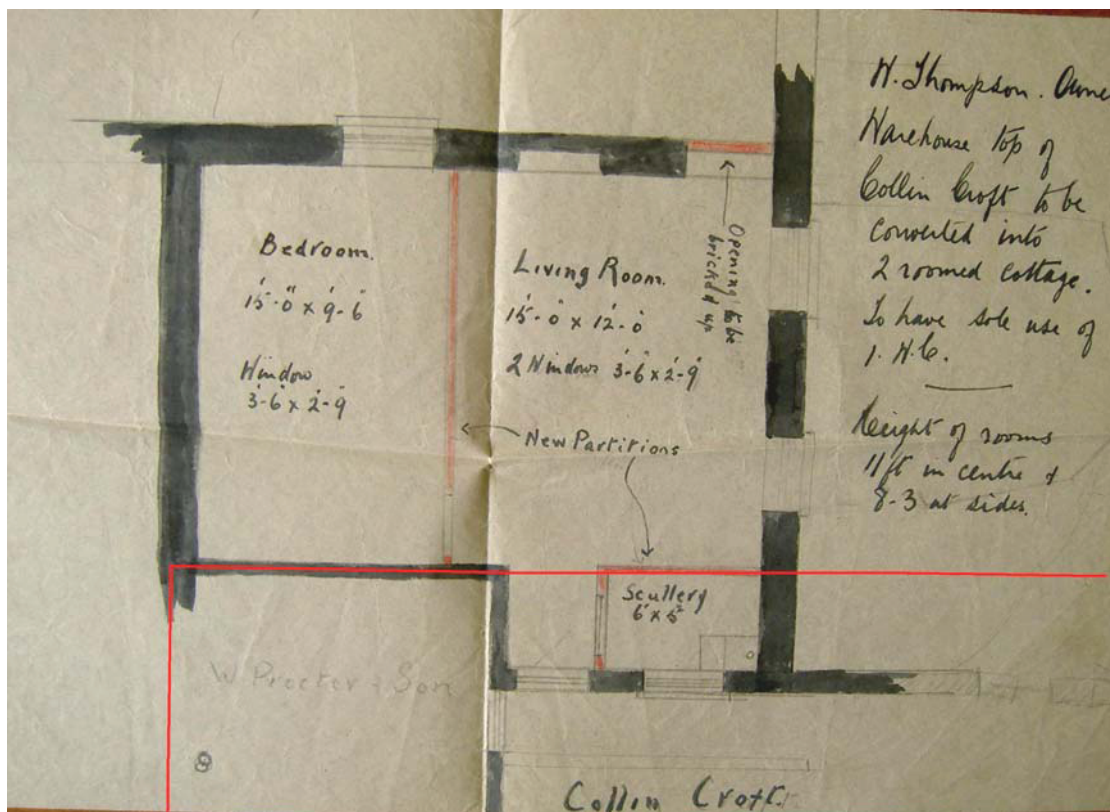 W. Thompson. Owne
Warehouse top of
Collin Croft to be
converted into
2 roomed cottage.
To have sole use of
1. W.C.
Height of rooms
11ft in centre &
8-3 at sides.
Bedroom.
15'-0" x 9'-6"
Window
3'-6" x 2'-9"
Living Room.
15'-0" x 12'-0"
2 Windows 3'-6" x 2'-9"
Opening to be
brick'd up
New Partitions
Scullery
6' x 5'
W Procter & Son
Collin Croft.